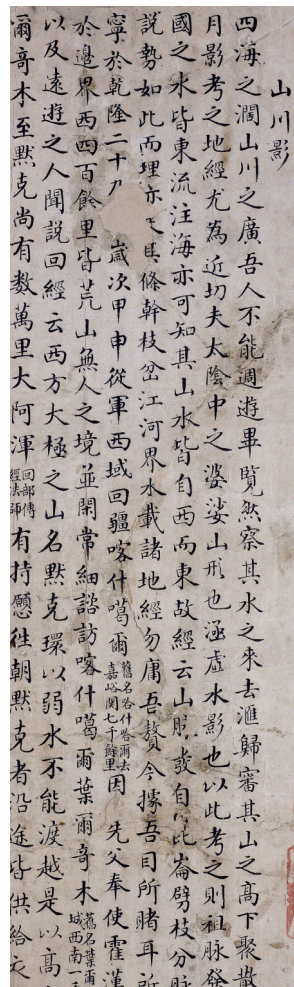 山川影
四海之濶山川之廣吾人不能週遊畢覽然察其水之來去滙歸審其山之高下聚散
月影考之地經尤為近切夫太陰中之婆娑山形也涵虛水影也以此考之則祖脉發
國之水皆東流注海亦可知其山水皆自西而東故經云山脉發自崑崙劈枝分脉
說勢如此而埋亦其條幹枝岔江河界水載諸地經勿庸吾贅今據吾目所睹耳所
寧於乾隆二十九歲次甲申從軍西域回疆喀什噶爾舊名哈什哈爾去嘉峪關七千餘里因先父奉使霍漢
於邊界西四百餘里皆荒山無人之境並閑常細諮訪喀什噶爾葉爾竒木舊名葉爾城西南一千
以及遠遊之人聞說回經云西方大極之山名默克環以弱水不能渡越是以高
爾竒木至默克尚有数萬里大阿渾回部傳經法師有持願徃朝默克者沿途皆供給之